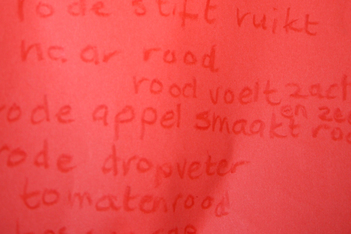 rode stift ruikt
naar rood
rood voelt zacht
en
rode appel smaakt
rode dropveter
tomatenrood